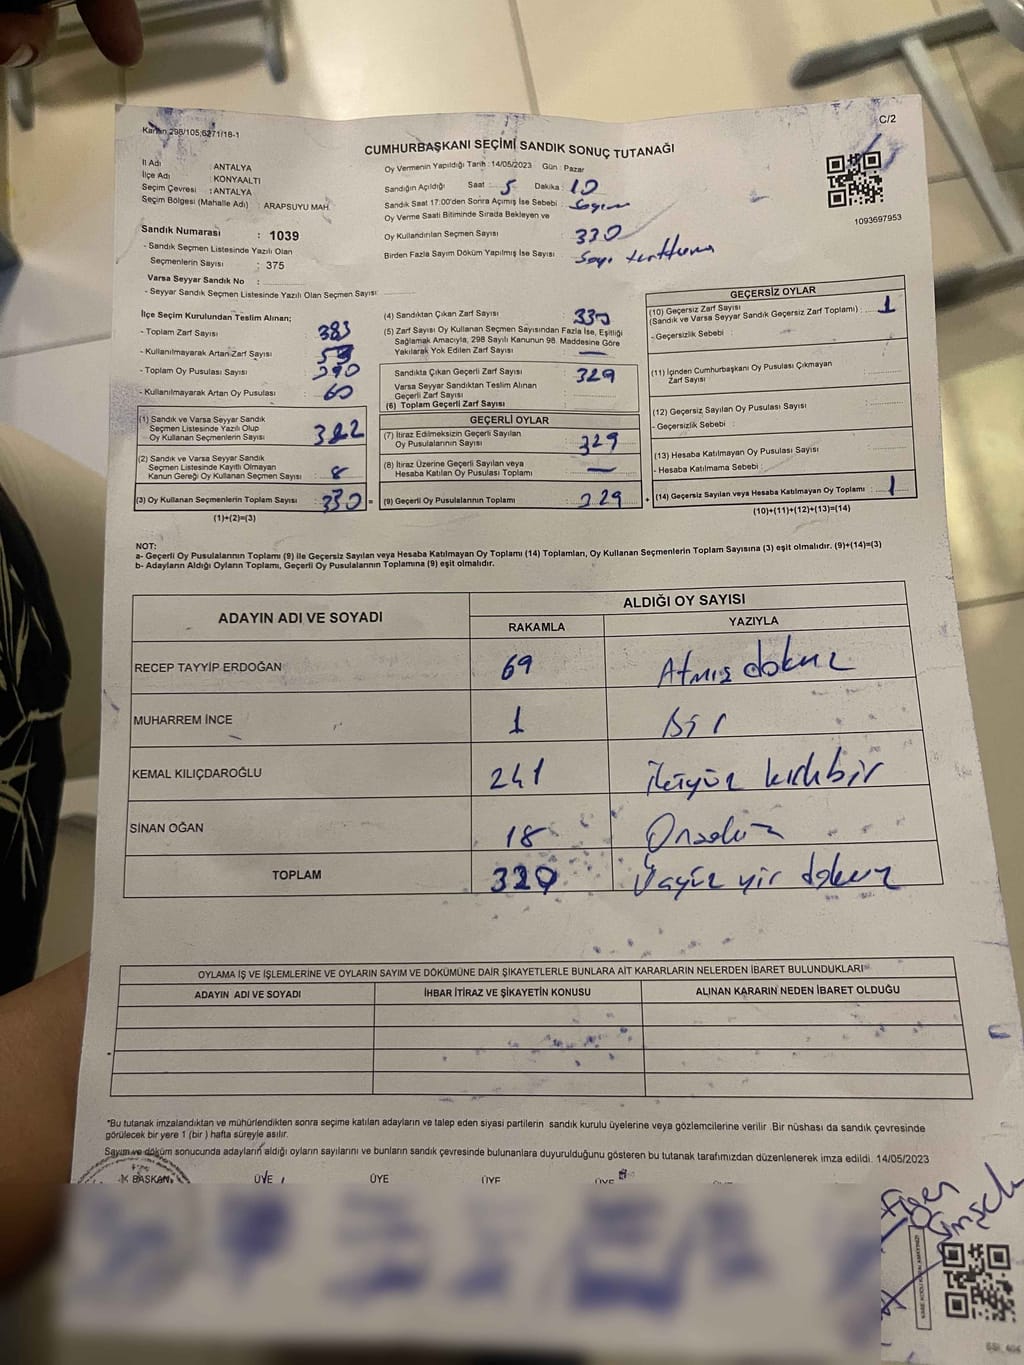 Kanun 298/105;6271/18-1
C/2
CUMHURBAŞKANI SEÇİMİ SANDIK SONUÇ TUTANAĞI
İl Adı ANTALYA
İlçe Adı : KONYAALTI
Seçim Çevresi : ANTALYA
Seçim Bölgesi (Mahalle Adı) : ARAPSUYU MAH.
Oy Vermenin Yapıldığı Tarih : 14/05/2023 Gün : Pazar
Sandığın Açıldığı Saat : 5 Dakika : 10
Sandık Saat 17:00'den Sonra Açılmış İse Sebebi :
Oy Verme Saati Bitiminde Sırada Bekleyen ve
Oy Kullandırılan Seçmen Sayısı 330
Birden Fazla Sayım Döküm Yapılmış İse Sayısı
1093697953
Sandık Numarası : 1039
- Sandık Seçmen Listesinde Yazılı Olan
Seçmenlerin Sayısı : 375
Varsa Seyyar Sandık No :
- Seyyar Sandık Seçmen Listesinde Yazılı Olan Seçmen Sayısı:
İlçe Seçim Kurulundan Teslim Alınan;
- Toplam Zarf Sayısı 383
- Kullanılmayarak Artan Zarf Sayısı 53
- Toplam Oy Pusulası Sayısı 390
- Kullanılmayarak Artan Oy Pusulası 60
(1) Sandık ve Varsa Seyyar Sandık
Seçmen Listesinde Yazılı Olup
Oy Kullanan Seçmenlerin Sayısı 322
(2) Sandık ve Varsa Seyyar Sandık
Seçmen Listesinde Kayıtlı Olmayan
Kanun Gereği Oy Kullanan Seçmen Sayısı 8
(3) Oy Kullanan Seçmenlerin Toplam Sayısı 330 =
(1)+(2)=(3)
(4) Sandıktan Çıkan Zarf Sayısı : 330
(5) Zarf Sayısı Oy Kullanan Seçmen Sayısından Fazla İse, Eşitliği
Sağlamak Amacıyla, 298 Sayılı Kanunun 98. Maddesine Göre
Yakılarak Yok Edilen Zarf Sayısı : —
Sandıkta Çıkan Geçerli Zarf Sayısı : 329
Varsa Seyyar Sandıktan Teslim Alınan
Geçerli Zarf Sayısı :
(6) Toplam Geçerli Zarf Sayısı
GEÇERLİ OYLAR
(7) İtiraz Edilmeksizin Geçerli Sayılan
Oy Pusulalarının Sayısı : 329
(8) İtiraz Üzerine Geçerli Sayılan veya
Hesaba Katılan Oy Pusulası Toplamı —
(9) Geçerli Oy Pusulalarının Toplamı : 329 +
GEÇERSİZ OYLAR
(10) Geçersiz Zarf Sayısı
(Sandık ve Varsa Seyyar Sandık Geçersiz Zarf Toplamı) : 1
- Geçersizlik Sebebi :
(11) İçinden Cumhurbaşkanı Oy Pusulası Çıkmayan
Zarf Sayısı :
(12) Geçersiz Sayılan Oy Pusulası Sayısı :
- Geçersizlik Sebebi :
(13) Hesaba Katılmayan Oy Pusulası Sayısı :
- Hesaba Katılmama Sebebi :
(14) Geçersiz Sayılan veya Hesaba Katılmayan Oy Toplamı : 1
(10)+(11)+(12)+(13)=(14)
NOT:
a- Geçerli Oy Pusulalarının Toplamı (9) ile Geçersiz Sayılan veya Hesaba Katılmayan Oy Toplamı (14) Toplamları, Oy Kullanan Seçmenlerin Toplam Sayısına (3) eşit olmalıdır. (9)+(14)=(3)
b- Adayların Aldığı Oyların Toplamı, Geçerli Oy Pusulalarının Toplamına (9) eşit olmalıdır.
ADAYIN ADI VE SOYADI ALDIĞI OY SAYISI
RAKAMLA YAZIYLA
RECEP TAYYİP ERDOĞAN 69 Atmış dokuz
MUHARREM İNCE 1 Bir
KEMAL KILIÇDAROĞLU 241 ikiyüz kırkbir
SİNAN OĞAN 18 Onsekiz
TOPLAM 329 Üçyüz yir dokuz
OYLAMA İŞ VE İŞLEMLERİNE VE OYLARIN SAYIM VE DÖKÜMÜNE DAİR ŞİKAYETLERLE BUNLARA AİT KARARLARIN NELERDEN İBARET BULUNDUKLARI
ADAYIN ADI VE SOYADI İHBAR İTİRAZ VE ŞİKAYETİN KONUSU ALINAN KARARIN NEDEN İBARET OLDUĞU
*Bu tutanak imzalandıktan ve mühürlendikten sonra seçime katılan adayların ve talep eden siyasi partilerin sandık kurulu üyelerine veya gözlemcilerine verilir .Bir nüshası da sandık çevresinde
görülecek bir yere 1 (bir ) hafta süreyle asılır.
Sayım ve döküm sonucunda adayların aldığı oyların sayılarını ve bunların sandık çevresinde bulunanlara duyurulduğunu gösteren bu tutanak tarafımızdan düzenlenerek imza edildi. 14/05/2023
BAŞKAN ÜYE ÜYE ÜYE ÜYE